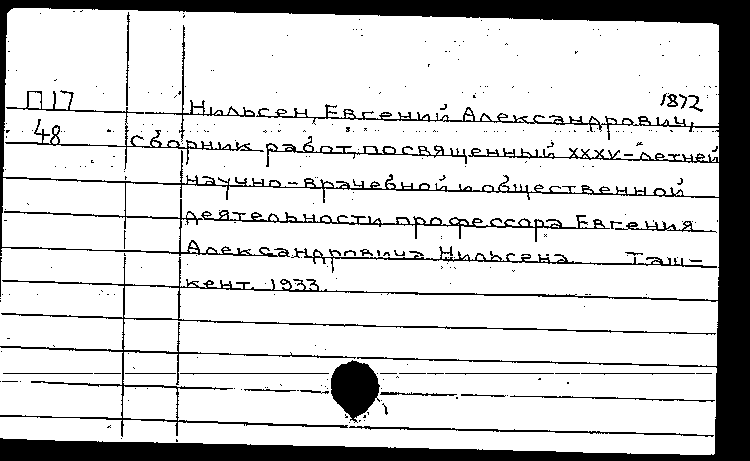 1872
П17 Нильсен, Евгений Александрович,
48 Сборник работ, посвященный XXXV-летней
научно-врачебной и общественной
деятельности профессора Евгения
Александровича Нильсена. Таш-
кент. 1933.